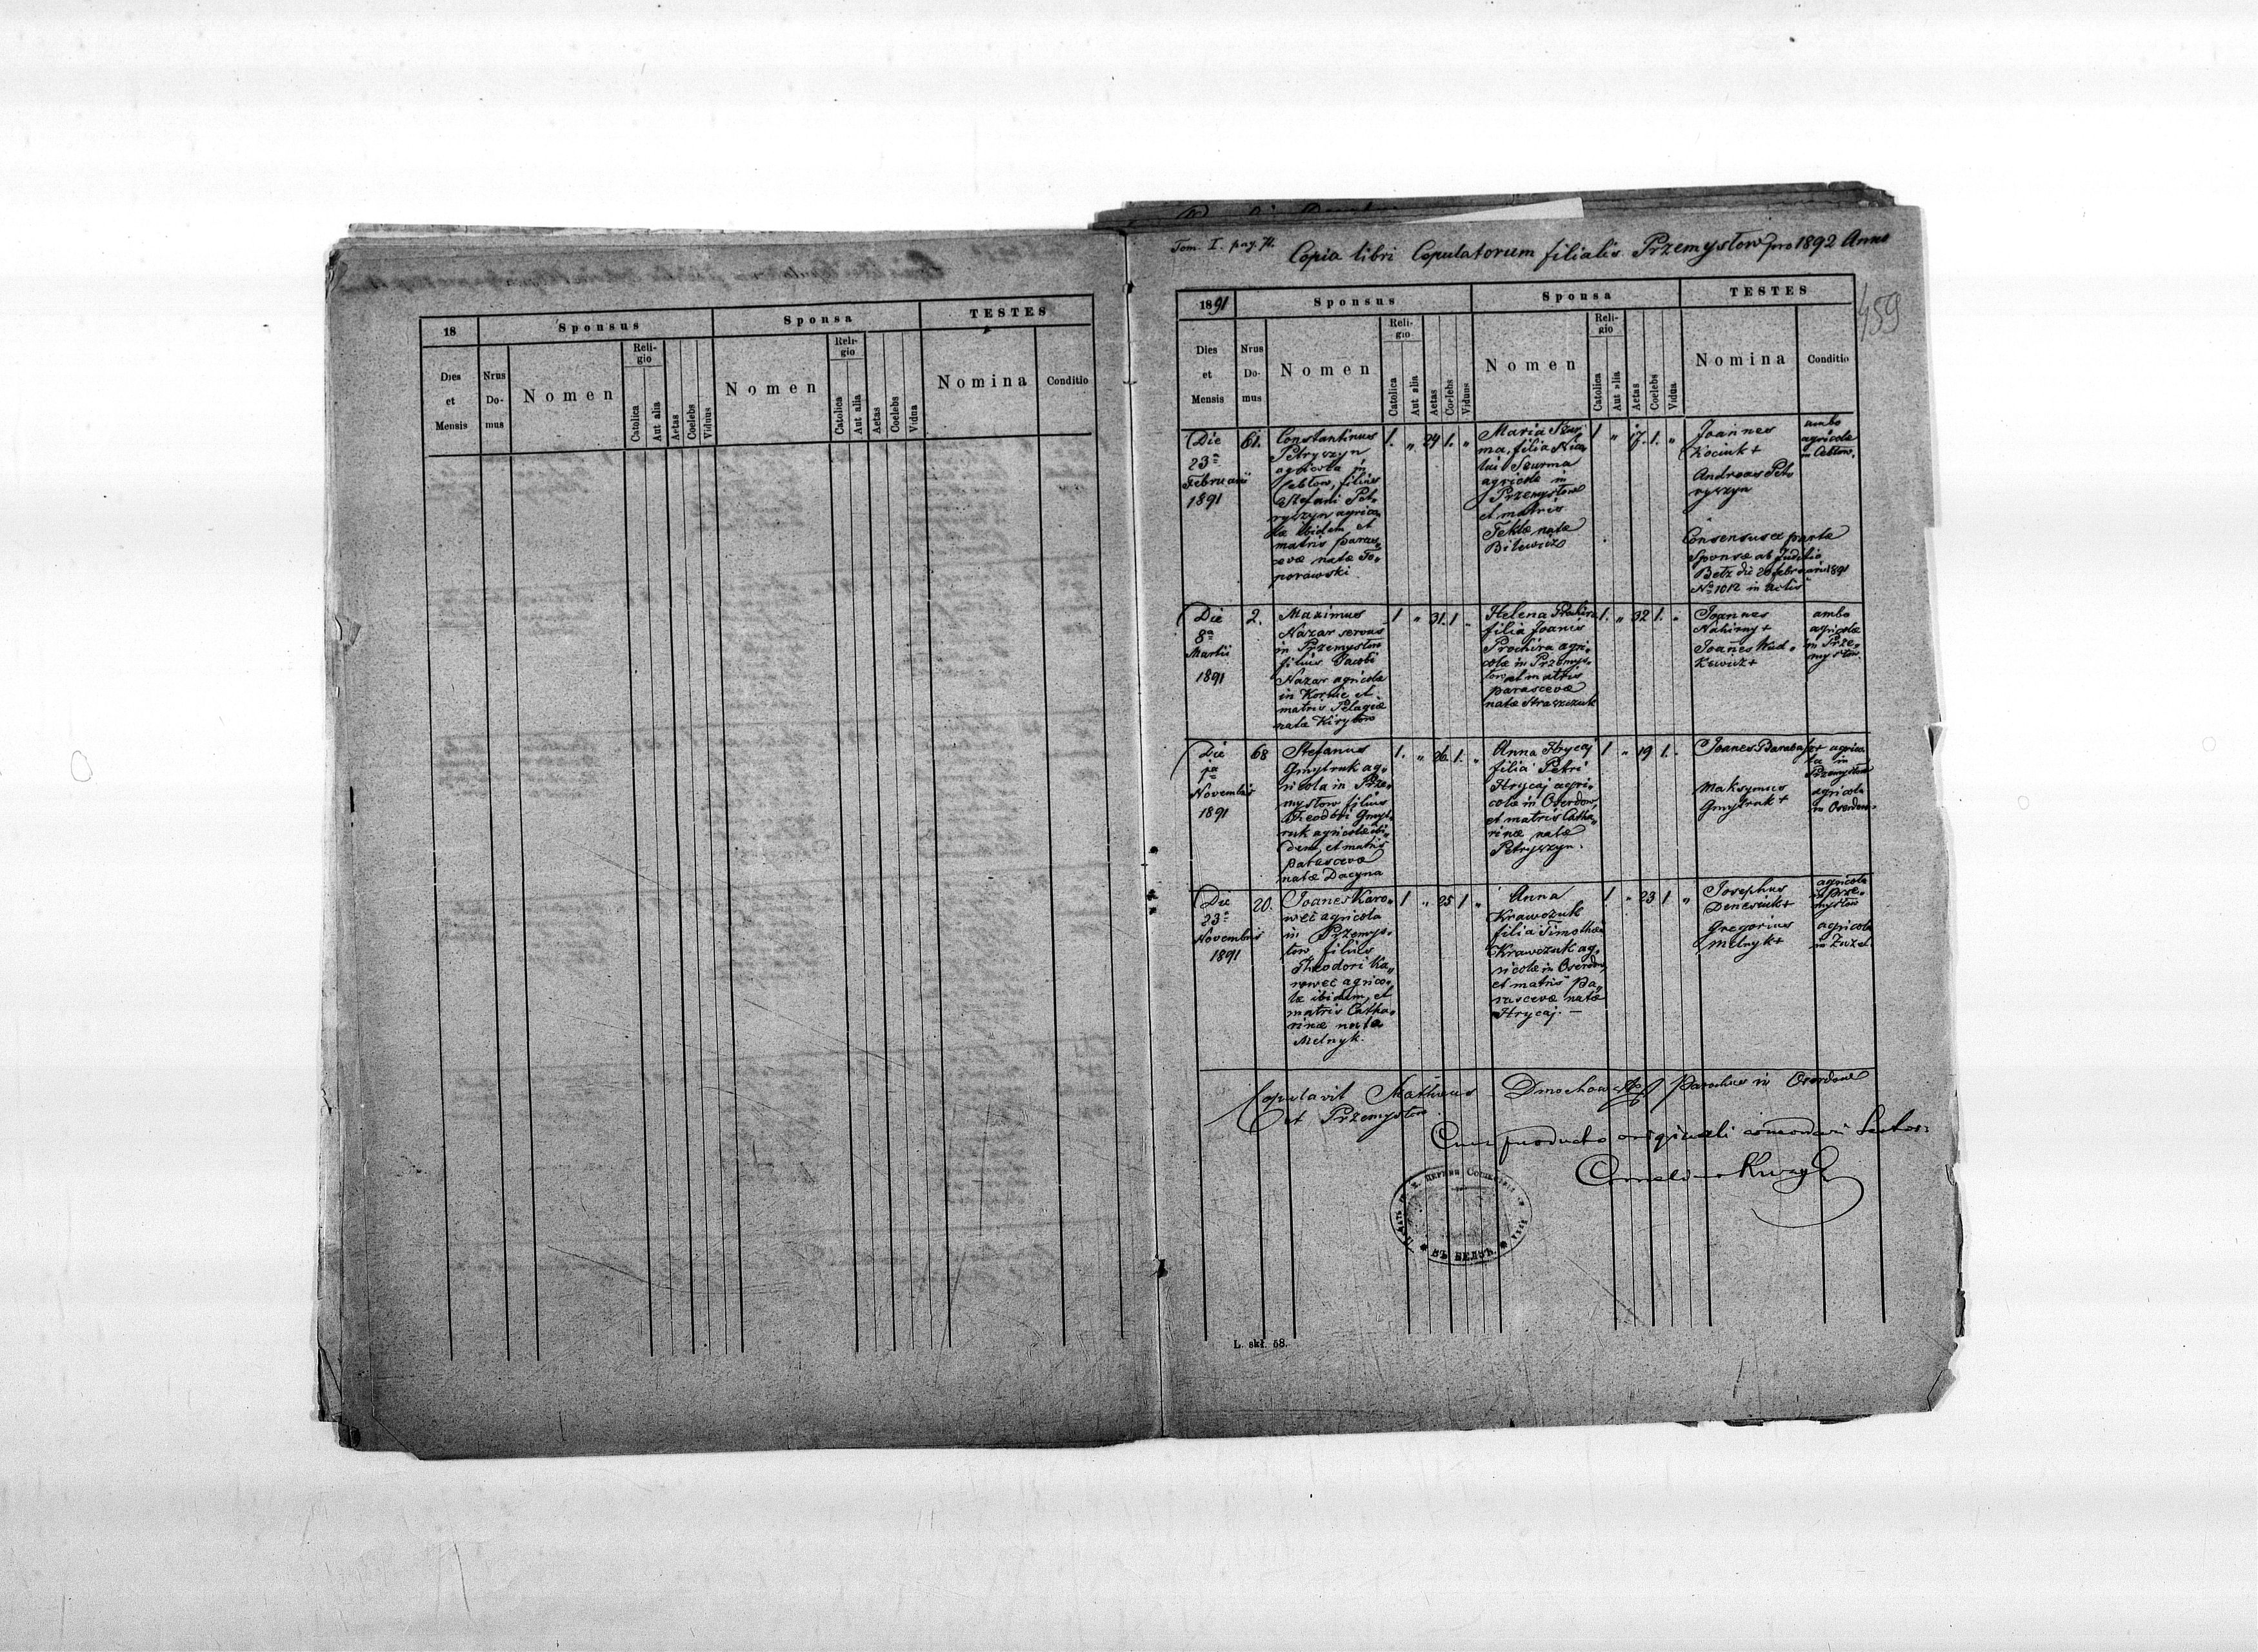 18
Sponsus
Sponsa
TESTES
Dies
et
Mensis
Nrus
Do-
mus
Nomen
Reli-
gio
Catolica
Aut alia
Aetas
Coelebs
Viduus
Nomen
Reli-
gio
Catolica
Aut alia
Aetas
Coelebs
Vidua
Nomina
Conditio
Tom. I. pag. 74.
Copia libri Copulatorum filialis Przemysłow pro 1892 Anno
459
1891
Sponsus
Sponsa
TESTES
Dies
et
Mensis
Nrus
Do-
mus
Nomen
Reli-
gio
Catolica
Aut alia
Aetas
Coelebs
Viduus
Nomen
Reli-
gio
Catolica
Aut alia
Aetas
Coelebs
Vidua
Nomina
Conditio
Die
23a
Februarii
1891
61.
Constantinus
Petryszyn
agricola in
Cebłow, filius
Stefani Pet„
ryszyn agrico„
læ ibidem et
matris paras„
cevæ natæ To„
porowski
1. „ 24 1. „
Maria Szur„
ma, filia Nico„
lai Szurma
agricolæ in
Przemysłow
et matris
Teklæ natæ
Bilewicz
1 „ 17. 1. „
Joannes
Kociuk +
Andreas Pet„
ryszyn
Consensus ex parte
Sponsæ ab Judicio
Bełz die 20 februarii 1891
No 1012 in actis
ambo
agricolæ
in Cebłow.
Die
8a
Martii
1891
2.
Maximus
Nazar servus
in Przemysłow
filius Jacobi
Nazar agricolæ
in Kornie et
matris Pelagiæ
natæ Kiryłow
1 „ 31. 1 „
Helena Prochira
filia Joanis
Prochira agri„
colæ in Przemys„
łow et matris
parascevæ
natæ Straszczuk
1. „ 32 1. „
Joannes
Nahirny +
Joanes Kud„
kewicz +
ambo
agricolæ
in Prze„
mysłow.
Die
1a
Novembris
1891
68
Stefanus
Gmytruk ag„
ricola in Prze„
mysłow filius
Theodori Gmyt„
ruk agricolæ ibi„
dem, et matris
parascevæ
natæ Dacyna
1. „ 26. 1. „
Anna Hrycaj
filia Petri
Hrycaj agri„
colæ in Oserdow,
et matris Catha„
rinæ natæ
Petryszyn.
1 „ 19 1. „
Joanes
Maksymus
Gmytruk +
agrico„
la in
Przemysłow
agricola
in Oserdow.
Die
23a
Novembris
1891
20.
Joanes Karo„
wec agricola
in Przemys„
łow filius
Theodori Ka„
rowec agrico„
læ ibidem, et
matris Catha„
rinæ natæ
Melnyk.
1 „ 25 1 „
Anna
Krawczuk
filia Timothæi
Krawczuk ag„
ricolæ in Oserdow
et matris Pa„
rascevæ natæ
Hrycaj. —
1 „ 23 1 „
Josephus
Denesiuk +
Gregorius
Melnyk +
agricola
in Prze„
mysłow
agricola
in Żużel.
Copulavit Matheus Dmochowski Parochus in Oserdow
et Przemysłow.
Cum producto originali
ВЪ БЕЛЗѢ
L. skł. 58.